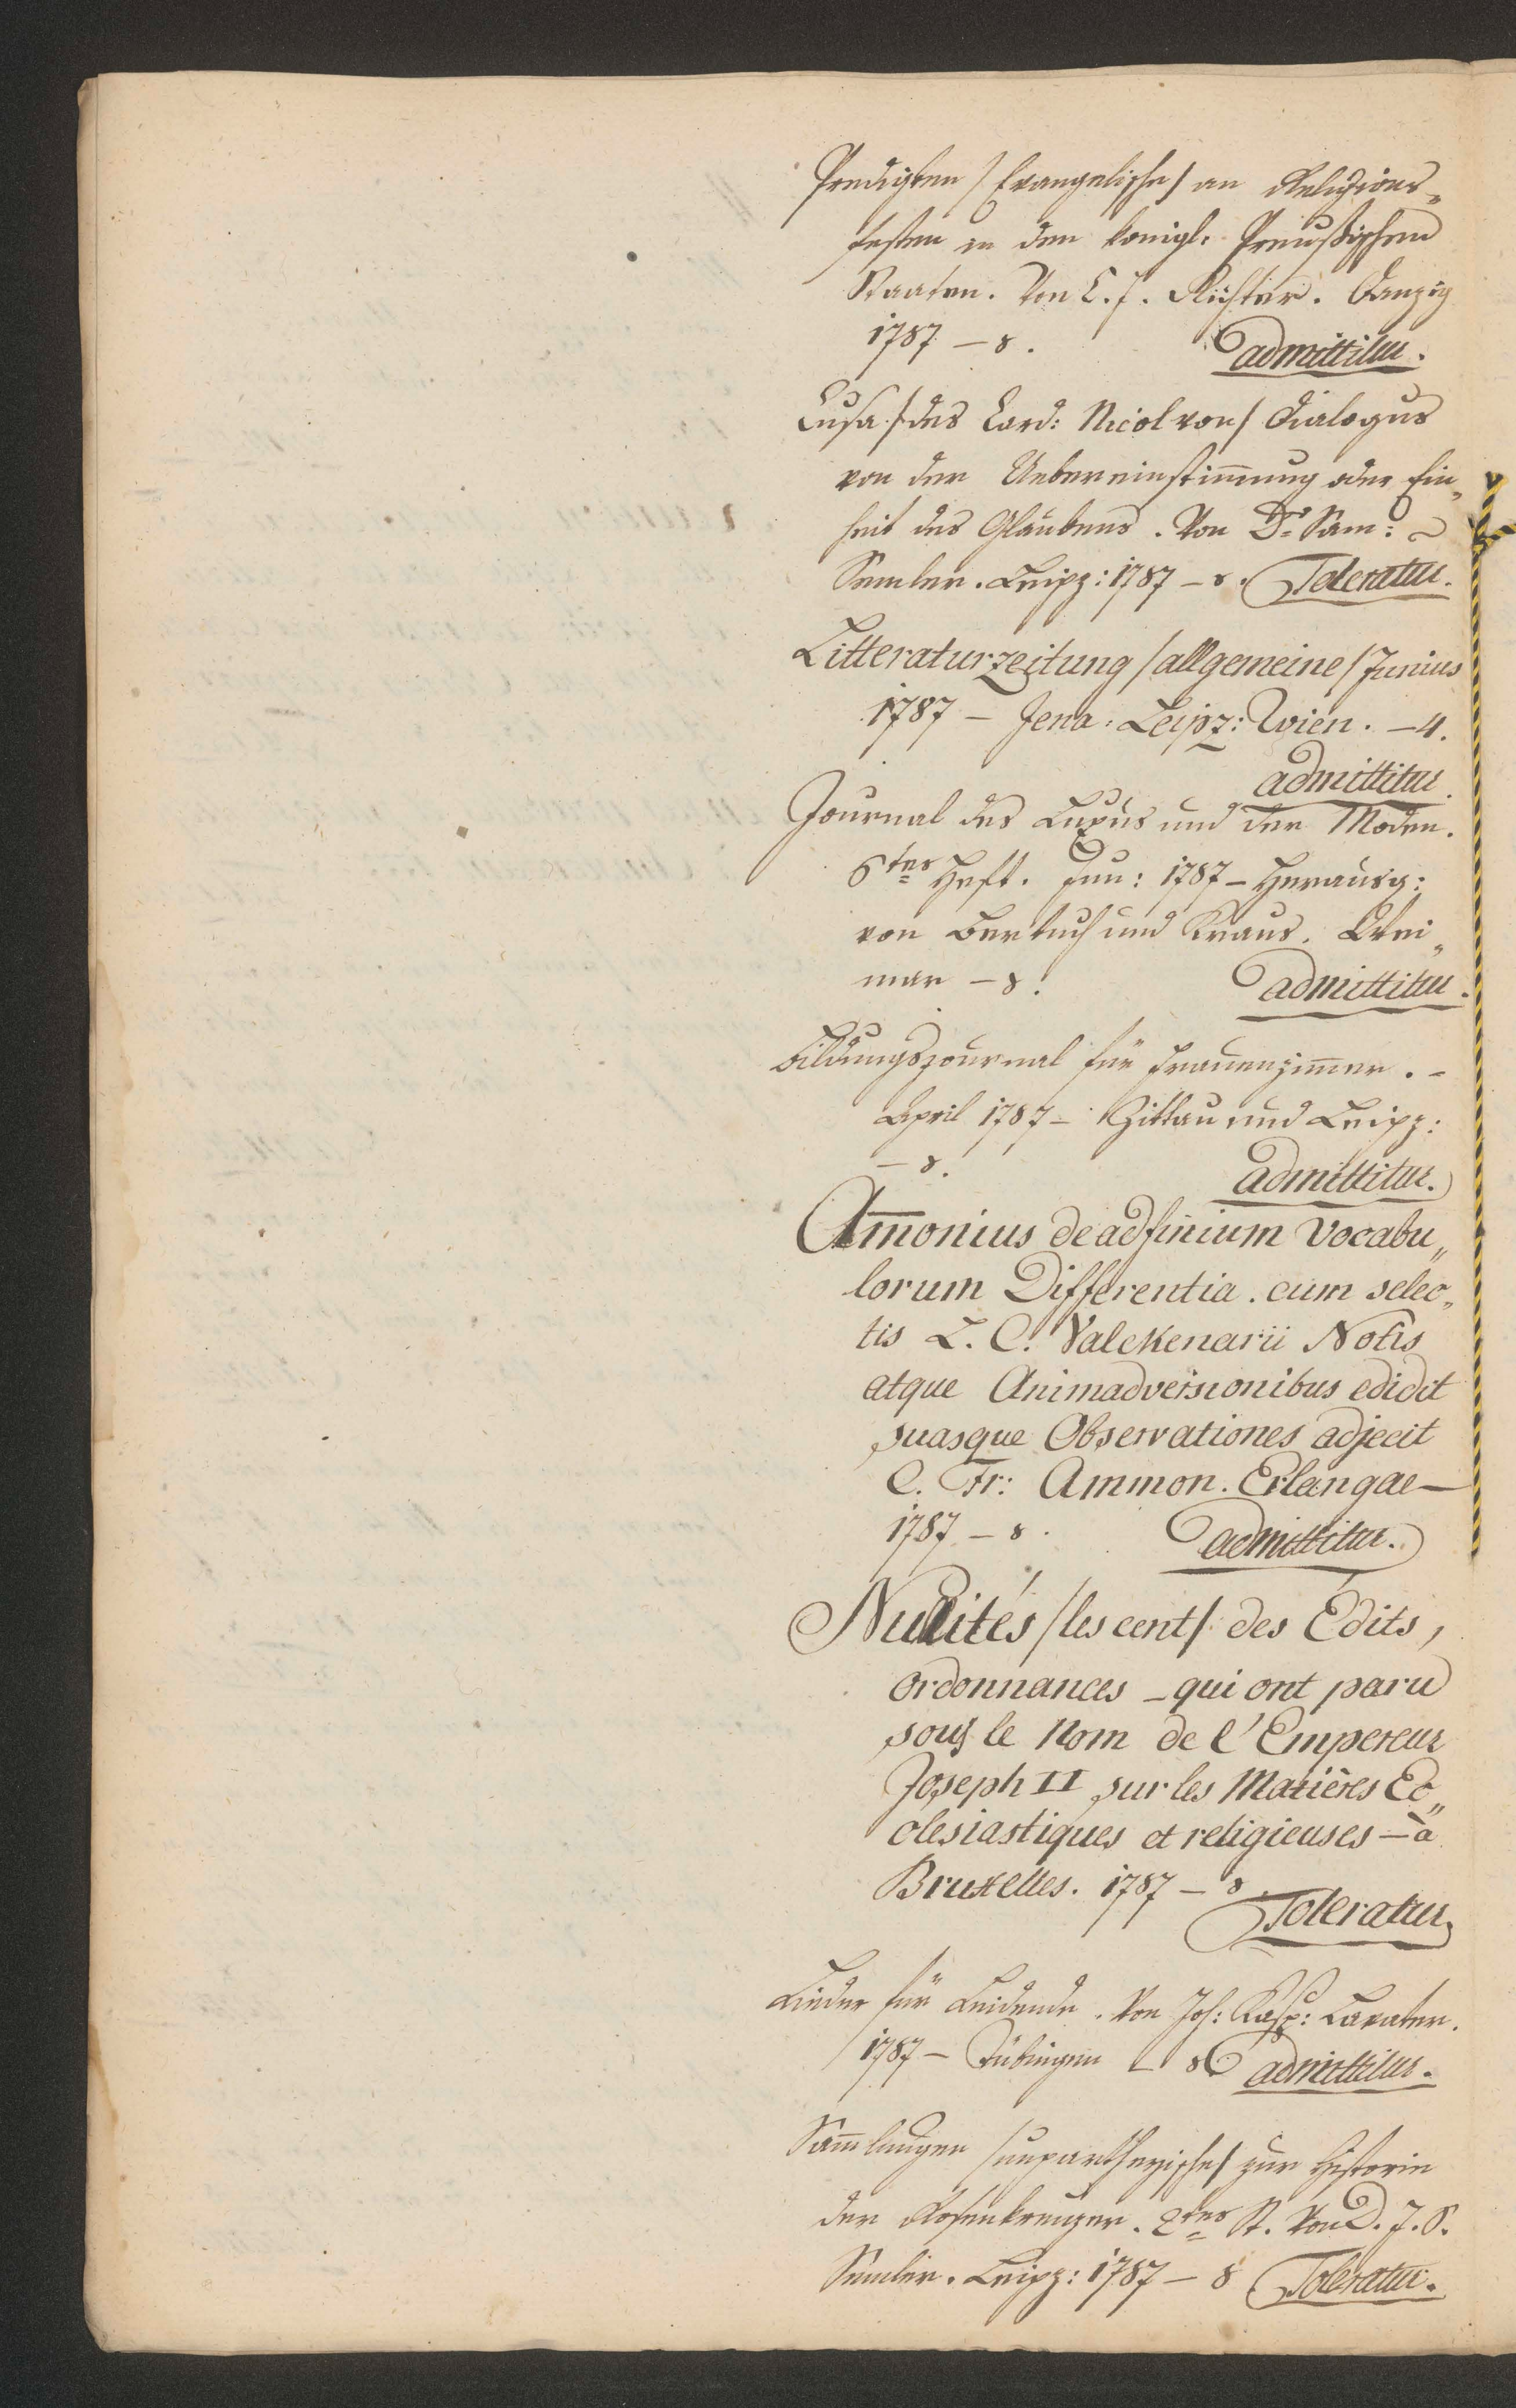 Predigten /Evangelische/ an Religions„
festen in den königl. Preußischen
Staaten. Von C. J. Richter. Danzig
1787 – 8.
admittitur.
Cusa /des Card: Nicol von/ Dialogus
von der Uebereinstim̄ung oder Ein„
heit des Glaubens. Von Dr Sam:
Semler. Leipz: 1787 – 8. Toleratur.
Litteraturzeitung /allgemeine/ Junius
1787 – Jena. Leipz: Wien. – 4.
admittitur.
Journal des Luxus und der Moden.
6tes Heft. Jun: 1787 – Herausg:
von Bertuch und Kraus. Wei„
mar – 8.
admittitur.
Bildungsjournal für Frauenzim̄er. –
April 1787 – Zittau und Leipz:
– 8.
admittitur.
Am̄onius de adfinium vocabu„
lorum Differentia. cum selec„
tis L. C. Valckenarii Notis
atque Animadversionibus edidit
suasque Observationes adjecit
C. Fr: Ammon. Erlangae –
1787 – 8.
admittitur.
Nullités /les cent/ des Édits,
ordonnances – qui ont paru
sous le Nom de l'Empereur
Joseph II sur les Matières Ec„
clesiastiques et religieuses – à
Bruxelles. 1787 – 8.
Toleratur.
Lieder für Leidende. Von Joh: Kasp: Lavater.
1787 – Tübingen – 8 admittitur.
Sam̄lungen /unpartheyische/ zur Historie
der Rosenkreuzer. 2tes St. Von D. J. S.
Semler. Leipz: 1787 – 8 Toleratur.